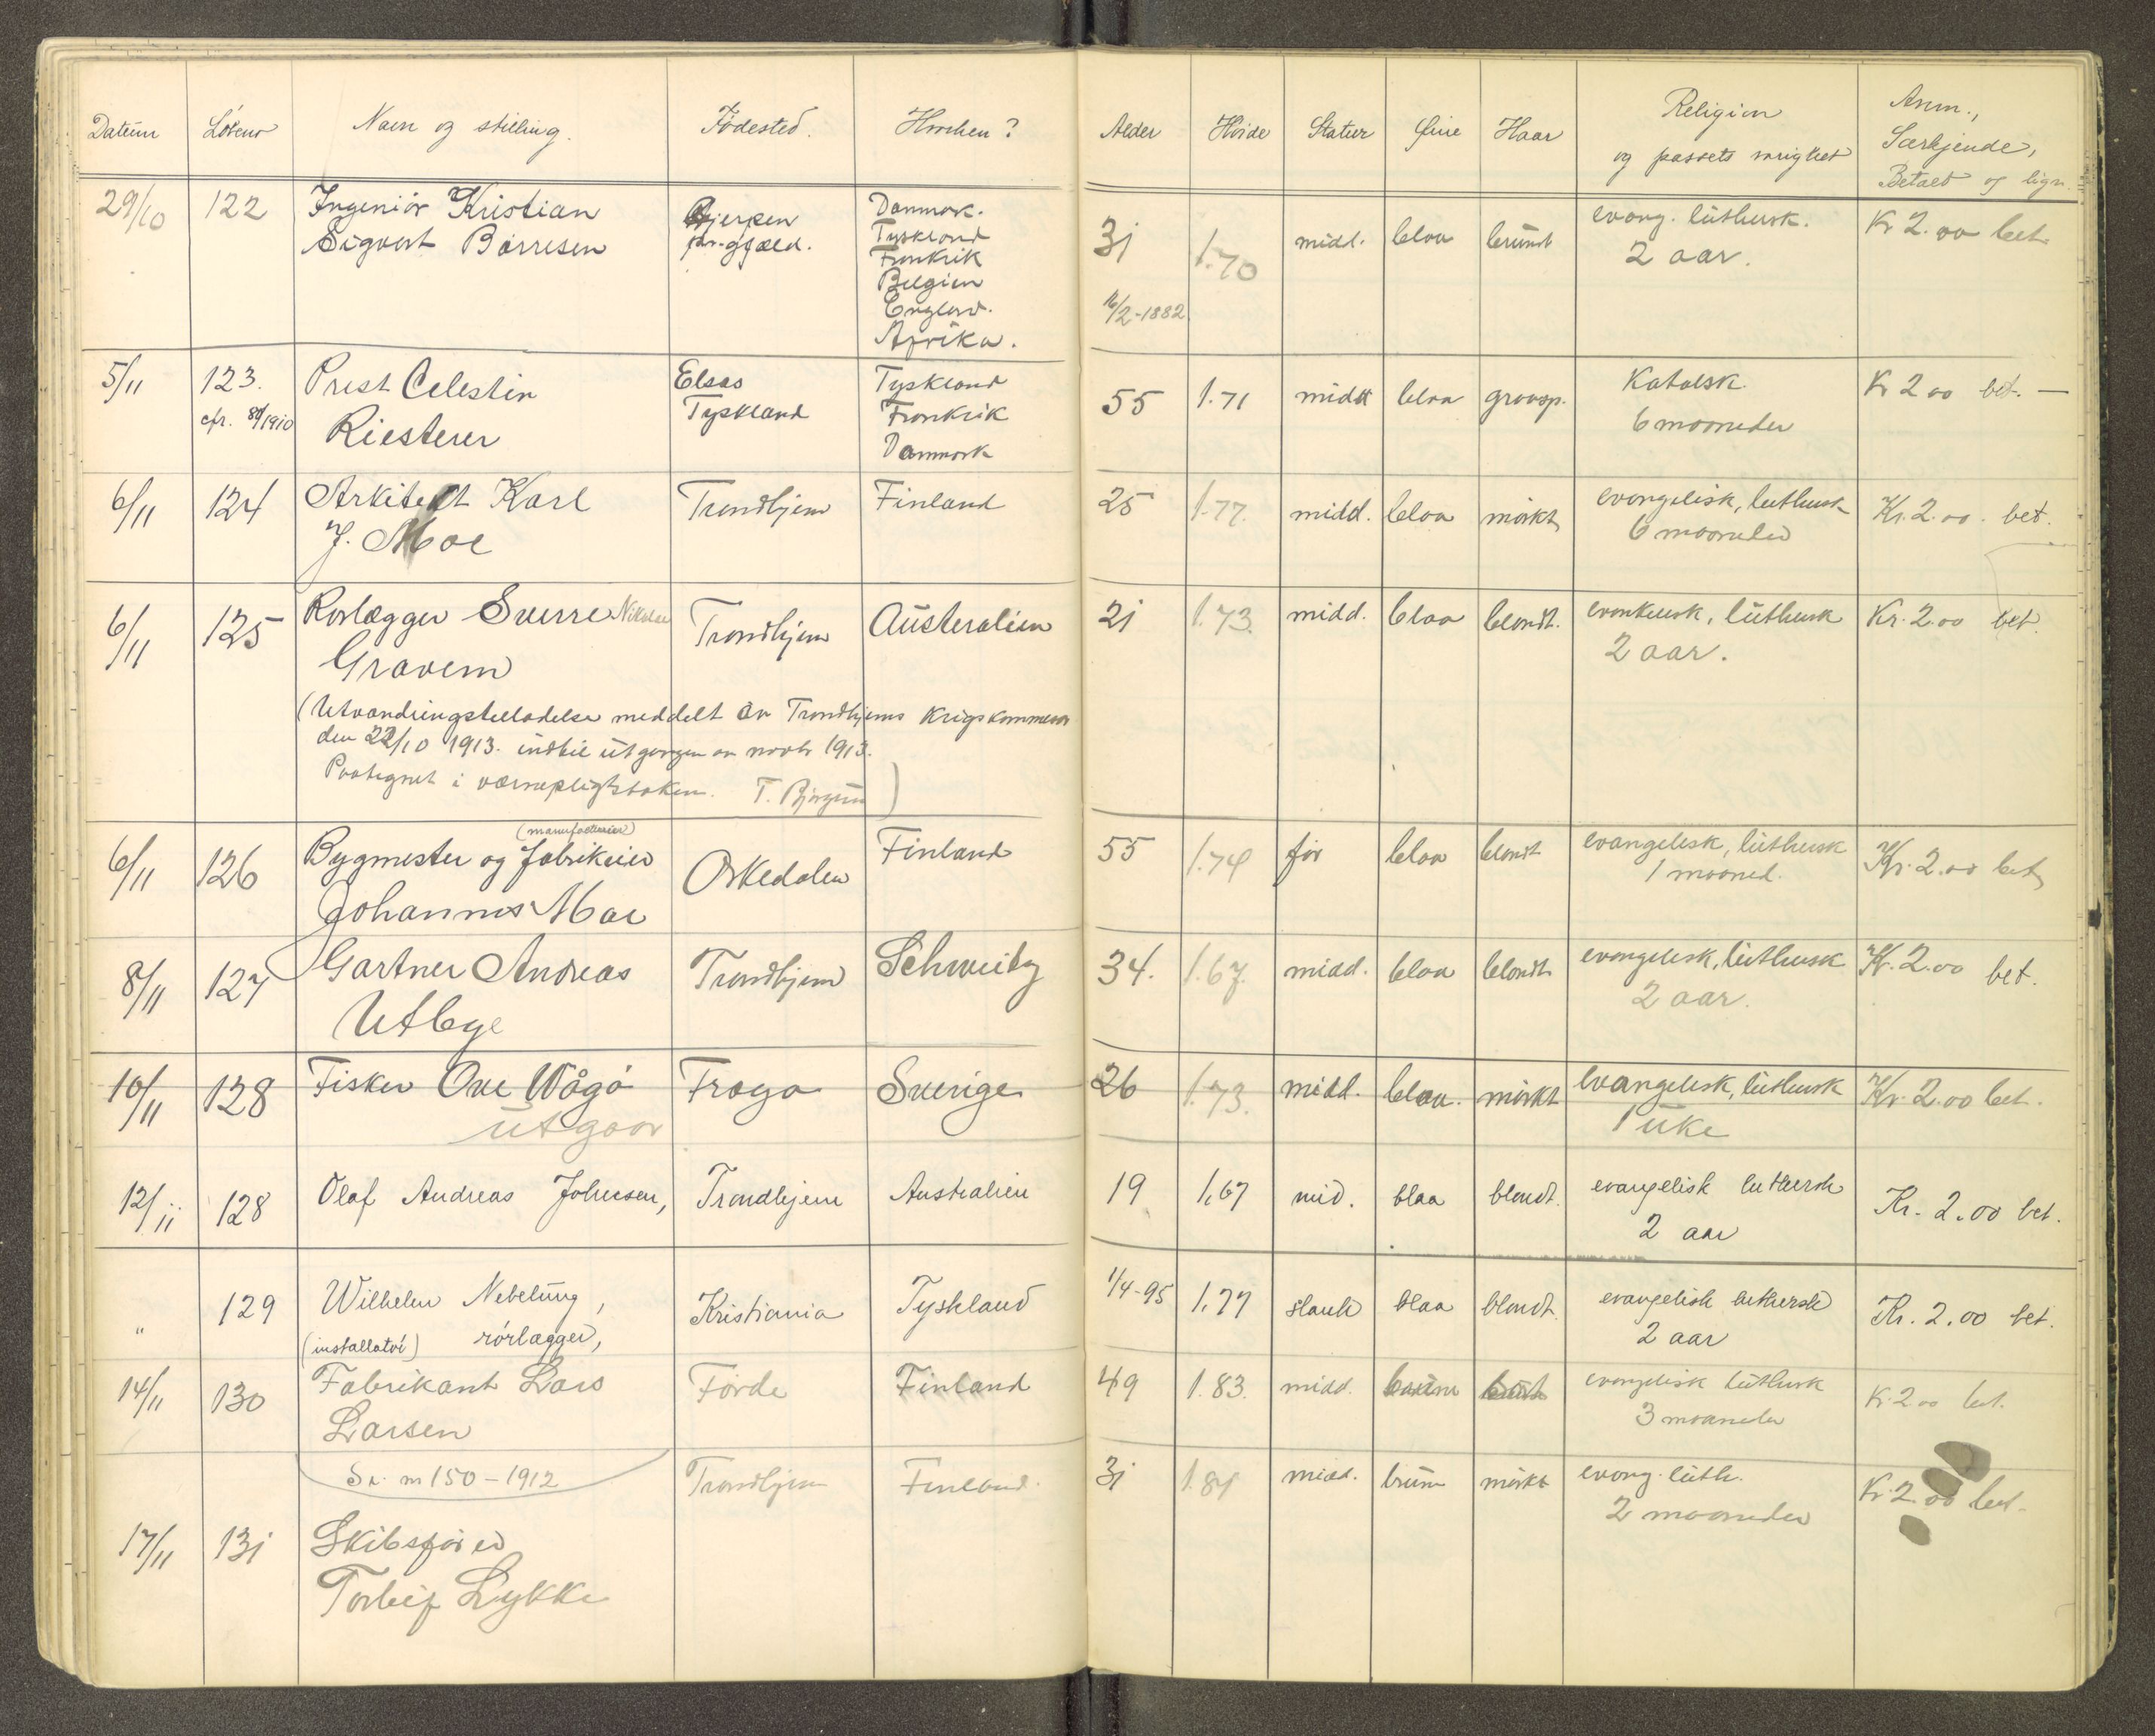 Datum Löbeno Navn og stilling. Födested. Hvorhen? Alder Höide Statur Öine Haar Religion og passets varighet Anm., Særkjende, Betalt og lign.
29/10 122 Ingeniör Kristian Sigvart Börresen Gjerpen pr.gjæld. Danmark. Tyskland Frankrik Belgien England. Afrika. 31 16/2-1882 1.70 midd. blaa brunt evang. luthersk. 2 aar. Kr 2.00 bet.
5/11 123. cfr. /1910 Prest Celestin Riesterer Elsas Tyskland Tyskland Frankrik Danmark 55 1.71 midd blaa graasp. Katolsk. 6 maaneder Kr 2 00 bet. —
6/11 124 Arkitekt Karl J. Moe Trondhjem Finland 25 1.77. midd. blaa mörkt evangelisk, luthersk 6 maaneder Kr. 2.00. bet.
6/11 125 Rörlægger Sverre Nikolai Gravem Trondhjem Australien 21 1.73. midd. blaa blondt. luthersk 2 aar. Kr. 2.00 bet.
(Utvandringstilladelse meddelt av Trondhjems Krigskommissær
den 22/10 1913. indtil utgangen av novbr 1913.
Paategnet i værnepligtsboken. T. )
6/11 126 Bygmester og (manufacturier) Fabrikeier Johannes Moe Orkedalen Finland 55 1.74 för blaa blondt evangelisk, luthersk 1 maaned. Kr. 2.00 bet
8/11 127 Gartner Andreas Utbye Trondhjem Schweitz 34. 1.67. midd. blaa blondt evangelisk, luthersk 2 aar. Kr. 2.00 bet.
10/11 128 Fisker Ove Wågö Fröya Sverige 26 1.73. midd. blaa. mörkt evangelisk, luthersk 1 uke Kr. 2.00 bet.
utgaar
12/11 128 Olaf Andreas Johnsen, Trondhjem Australien 19 1,67 mid. blaa blondt. evangelisk luthersk 2 aar Kr. 2.00 bet.
" 129 Wilhelm Nebelung, (installatör) rörlægger, Kristiania Tyskland 1/4-95 1,77 slank blaa blondt. evangelisk luthersk 2 aar Kr. 2.00 bet.
14/11 130 Fabrikant Lars Larsen Förde Finland 49 1.83. midd. evangelisk luthersk 3 maaneder Kr 2 00 bet.
Se nr 150-1912
17/11 131 Skibsförer Torleif Lykke Trondhjem Finland. 31 1.81 midd. brune mörkt evang. luth. 2 maaneder Kr. 2.00 bet.